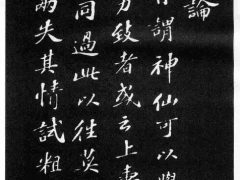 論
有謂神仙可以學
力致者或云上壽
同過此以往莫
兩失其情試粗